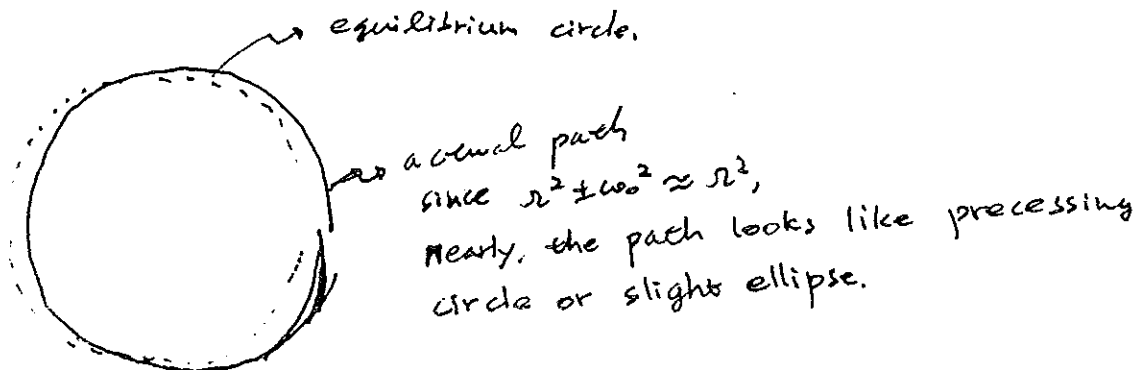 equilibrium circle.
actual path
since Ω² ± ω₀² ≈ Ω²,
Nearly, the path looks like precessing
circle or slight ellipse.